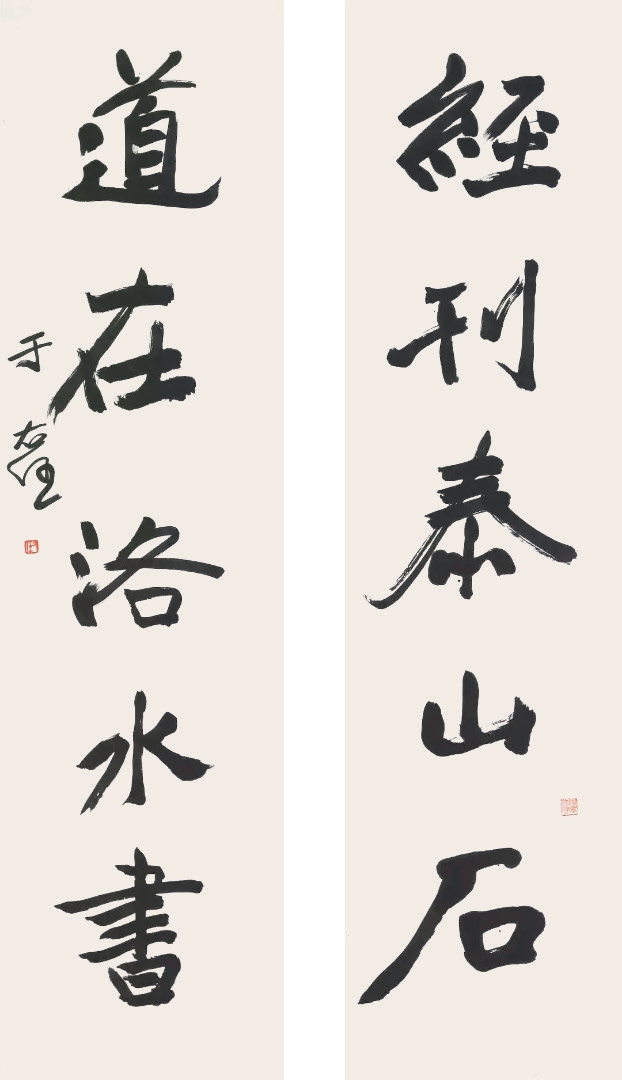 經刊泰山石
道在洛水書
于右任